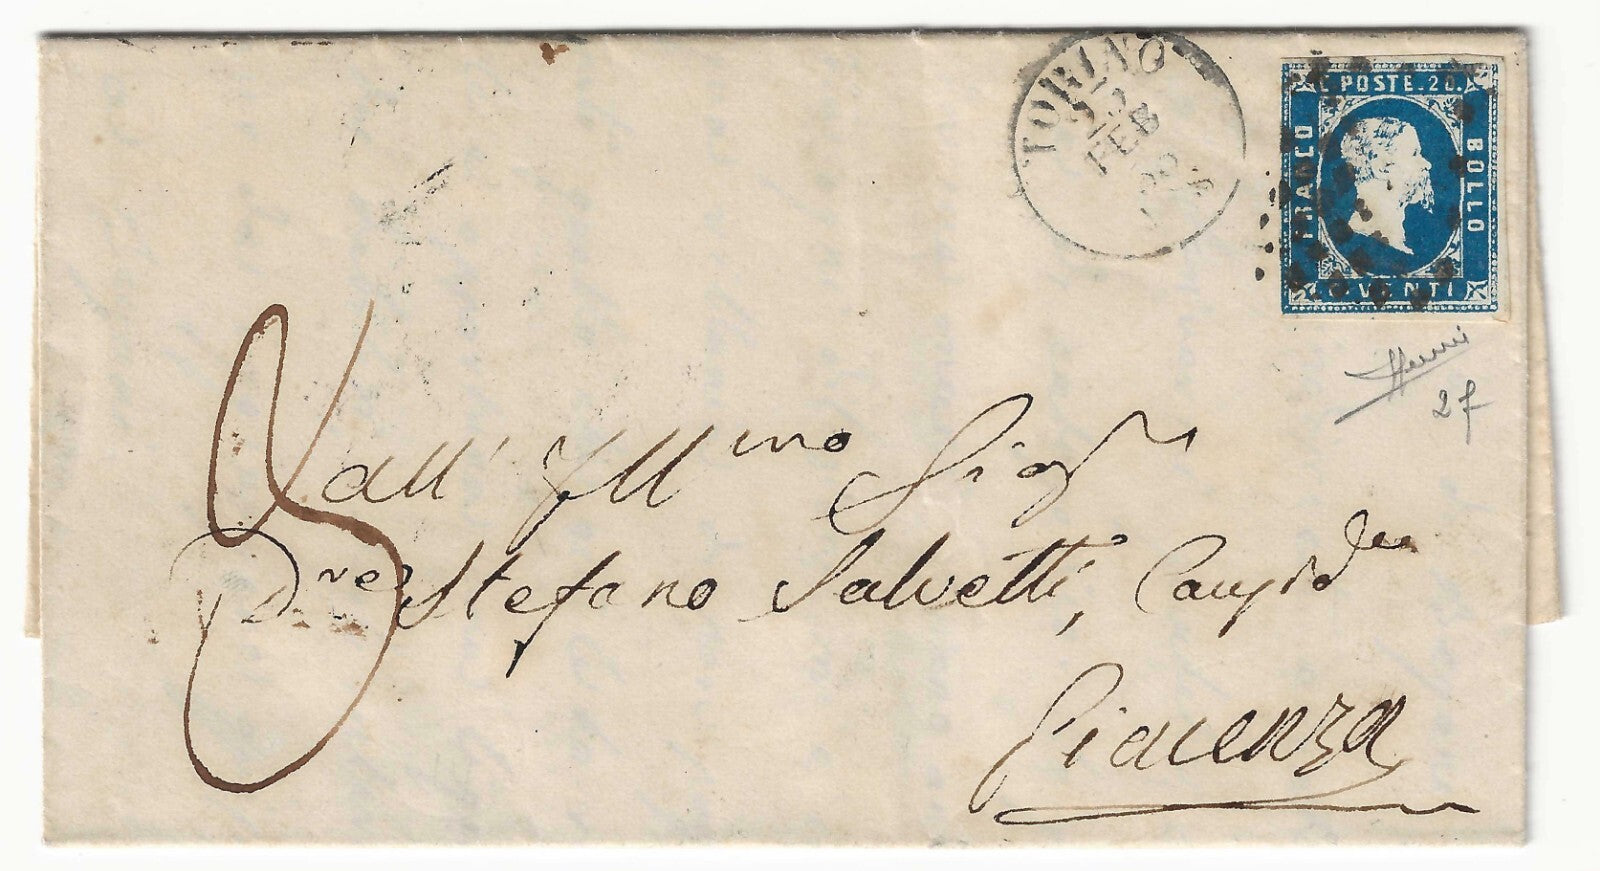 TORINO
12
FEB
C. POSTE. 20.
FRANCO
BOLLO
C. VENTI
2f
all' Ill mo Sigr
Dre Stefano Salvetti,
Piacenza